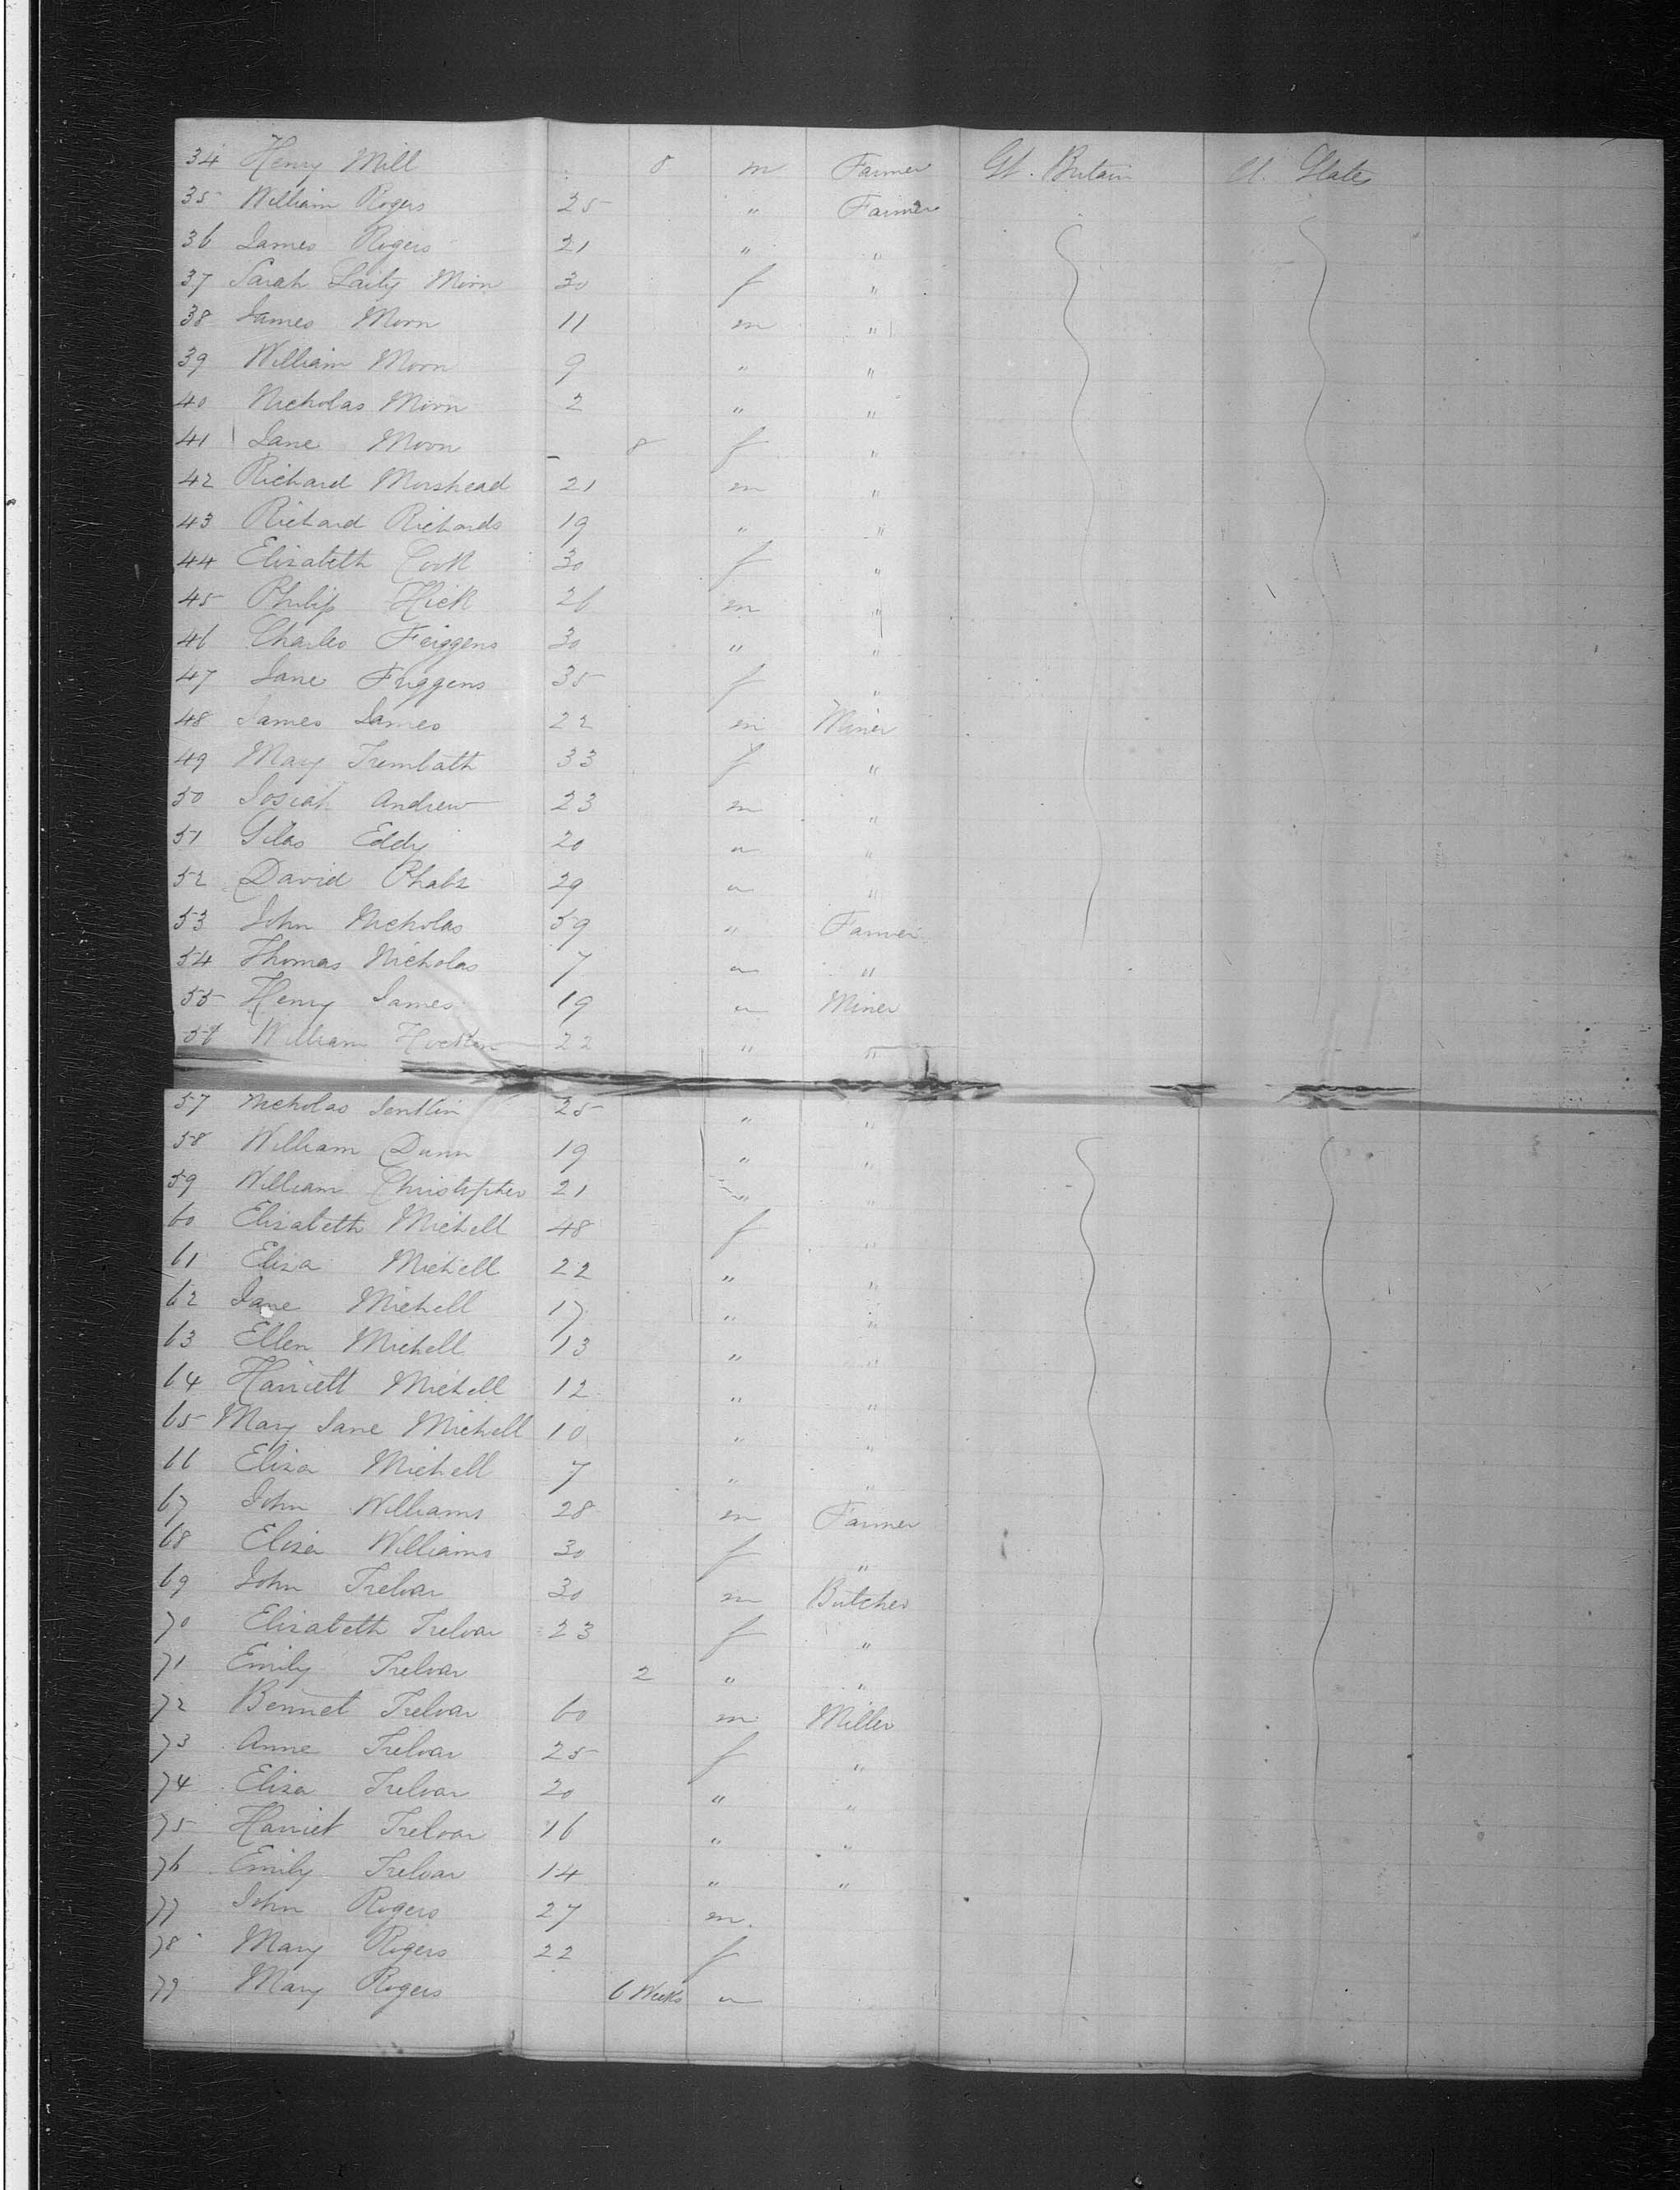 34 Henry Mill 8 m Farmer Gt. Britain U. States
35 William Rogers 25 " Farmer
36 James Rogers 21 " "
37 Sarah Laity Moon 30 f "
38 James Moon 11 m "
39 William Moon 9 " "
40 Nicholas Moon 2 " "
41 Jane Moon 8 f "
42 Richard Morshead 21 m "
43 Richard Richards 19 " "
44 Elizabeth Cock 30 f "
45 Philip Hick 26 m "
46 Charles 30 " "
47 Jane Friggens 35 f "
48 James James 22 m Miner
49 Mary Trembath 33 f "
50 Josiah Andrew 23 m "
51 Silas Eddy 20 " "
52 David 29 " "
53 John Nicholas 59 " Farmer
54 Thomas Nicholas 7 " "
55 Henry James 19 " Miner
56 William Hocken 22 " "
57 Nicholas Jenkin 25 " "
58 William Dunn 19 " "
59 William Christopher 21 " "
60 Elizabeth Michell 48 f "
61 Eliza Michell 22 " "
62 Jane Michell 17 " "
63 Ellen Michell 13 " "
64 Harriett Michell 12 " "
65 Mary Jane Michell 10 " "
66 Eliza Michell 7 " "
67 John Williams 28 m Farmer
68 Eliza Williams 30 f "
69 John Treloar 30 m Butcher
70 Elizabeth Treloar 23 f "
71 Emily Treloar 2 " "
72 Bennet Treloar 60 m Miller
73 Anne Treloar 25 f "
74 Eliza Treloar 20 " "
75 Harriet Treloar 16 " "
76 Emily Treloar 14 " "
77 John Rogers 27 m
78 Mary Rogers 22 f
79 Mary Rogers 6 Weeks "